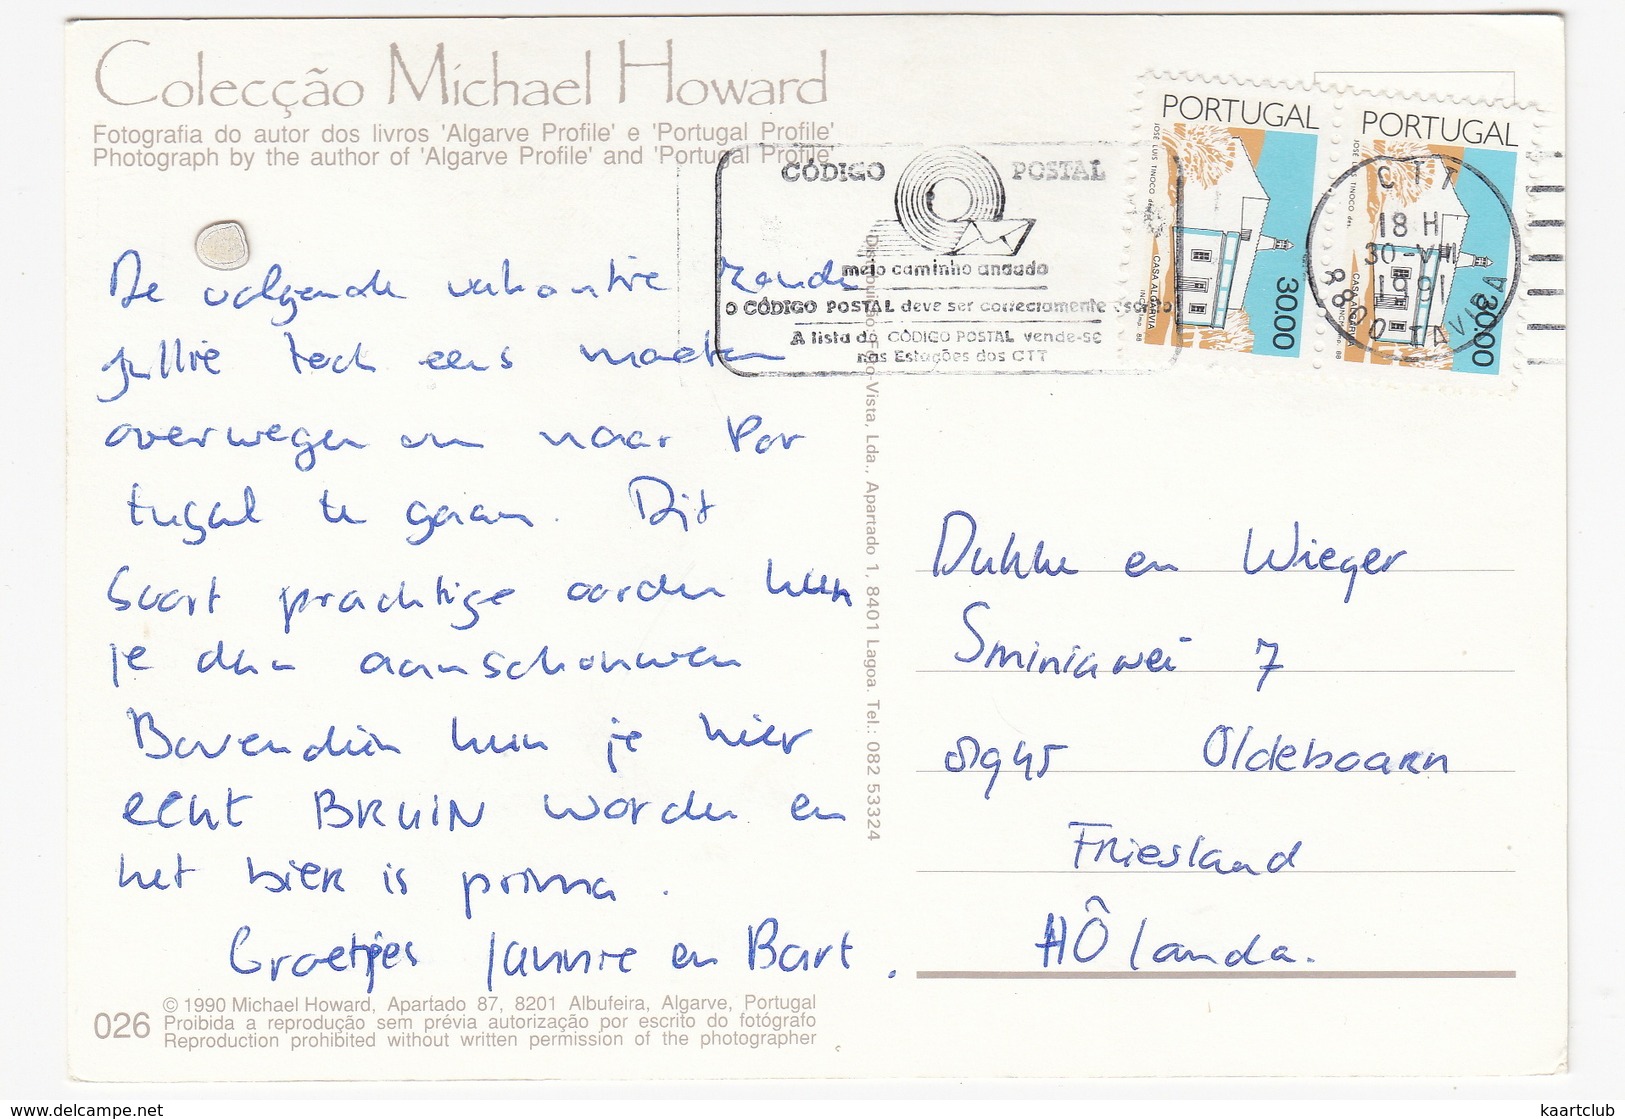 Colecção Michael Howard
Fotografia do autor dos livros 'Algarve Profile' e 'Portugal Profile'
Photograph by the author of 'Algarve Profile' and 'Portugal Profile'
De volgende vakantie zouden
jullie toch eens moeten
overwegen om naar Por
tugal te gaan. Dit
soort prachtige oorden kun
je dan aanschouwen
Bovendien kun je hier
echt BRUIN worden en
het bier is prima.
Groetjes Jannie en Bart.
026
© 1990 Michael Howard, Apartado 87, 8201 Albufeira, Algarve, Portugal
Proibida a reprodução sem prévia autorização por escrito do fotógrafo
Reproduction prohibited without written permission of the photographer
Distribuição: Foto-Vista, Lda., Apartado 1, 8401 Lagoa. Tel.: 082 53324
CÓDIGO POSTAL
meio caminho andado
O CÓDIGO POSTAL deve ser correctamente escrito
A lista do CÓDIGO POSTAL vende-se
nas Estações dos CTT
PORTUGAL
JOSÉ LUIS TINOCO des.
CASA ALGARVIA
INCM imp. 88
30.00
PORTUGAL
JOSÉ LUIS TINOCO des.
CASA ALGARVIA
INCM imp. 88
30.00
CTT
18 H
30-VII
1991
8800 TAVIRA
Dukke en Wieger
Sminiawei 7
8945 Oldeboarn
Friesland
HÔlanda.
www.delcampe.net
kaartclub